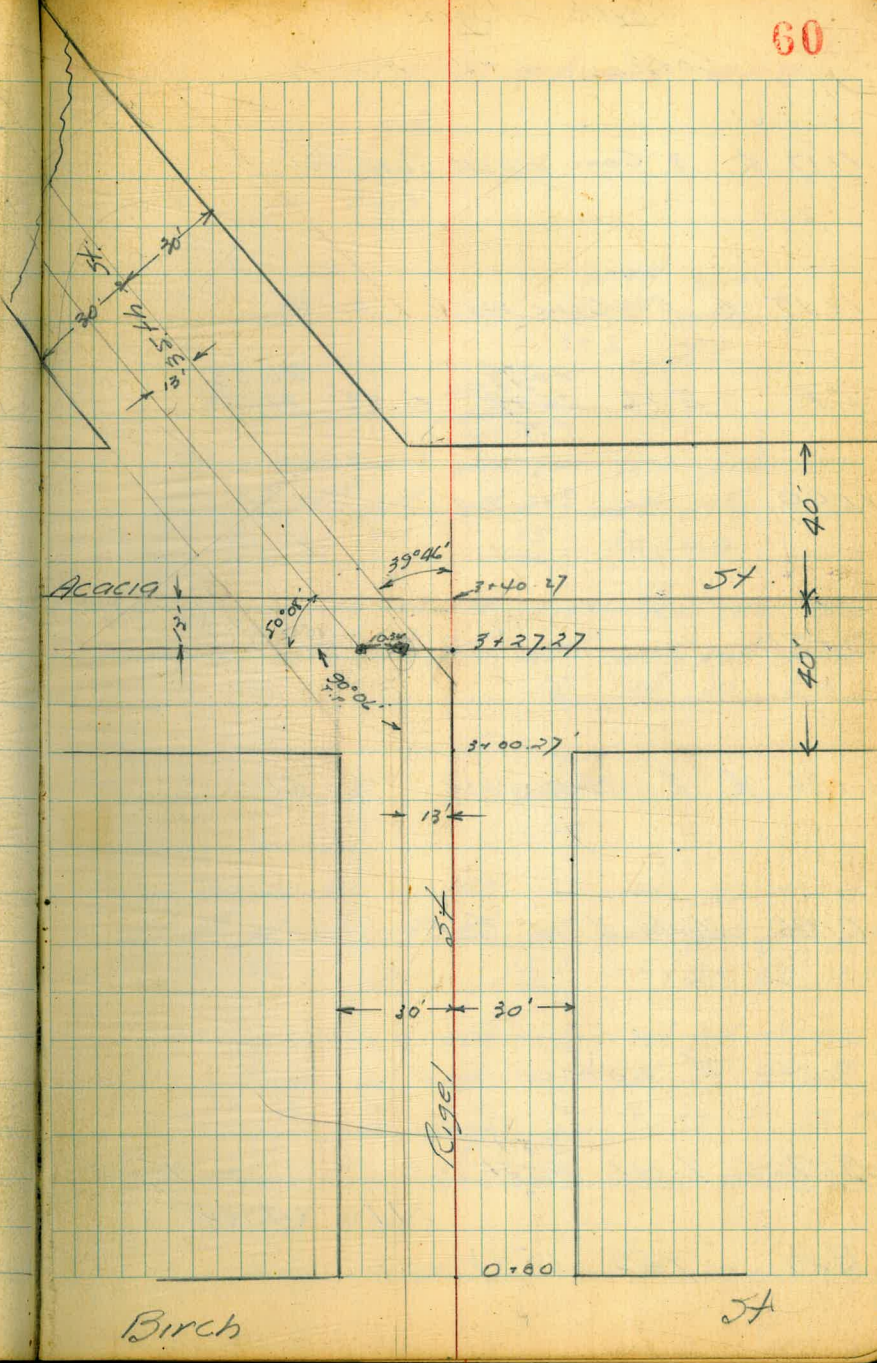 60
30'
St.
30
35th
13'
40'
39°46'
Acacia
3+40.27
St.
13'
50°08'
10.34
3+27.27
40'
90°06'
3+00.27'
13'
St
30'
30'
Rigel
0+00
Birch
St